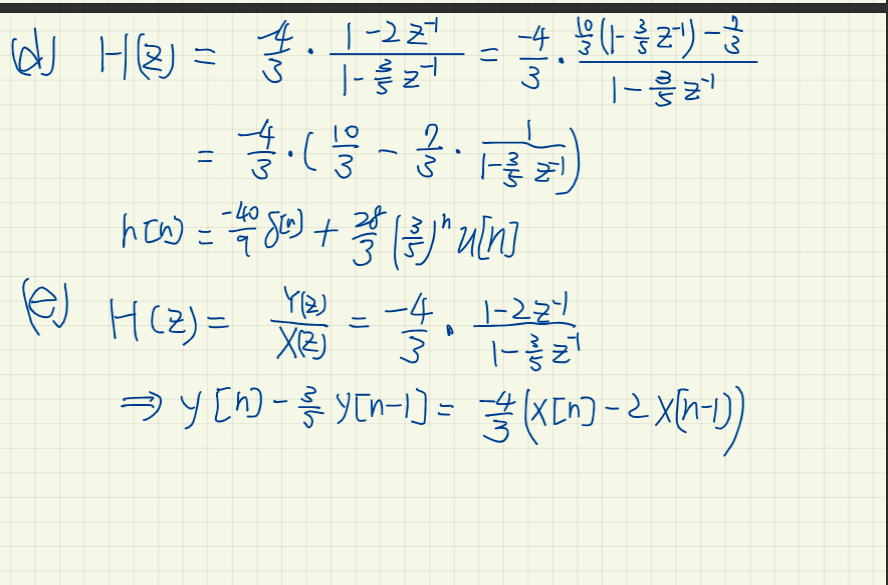 (d) H(z) = -4/3 · (1-2z^-1)/(1-3/5 z^-1) = -4/3 · (10/3(1-3/5 z^-1) - 7/3)/(1-3/5 z^-1)
= -4/3 · (10/3 - 7/3 · 1/(1-3/5 z^-1))
h[n] = -40/9 δ[n] + 28/3 (3/5)^n u[n]
(e) H(z) = Y(z)/X(z) = -4/3 · (1-2z^-1)/(1-3/5 z^-1)
⇒ y[n] - 3/5 y[n-1] = -4/3 (x[n] - 2x[n-1])